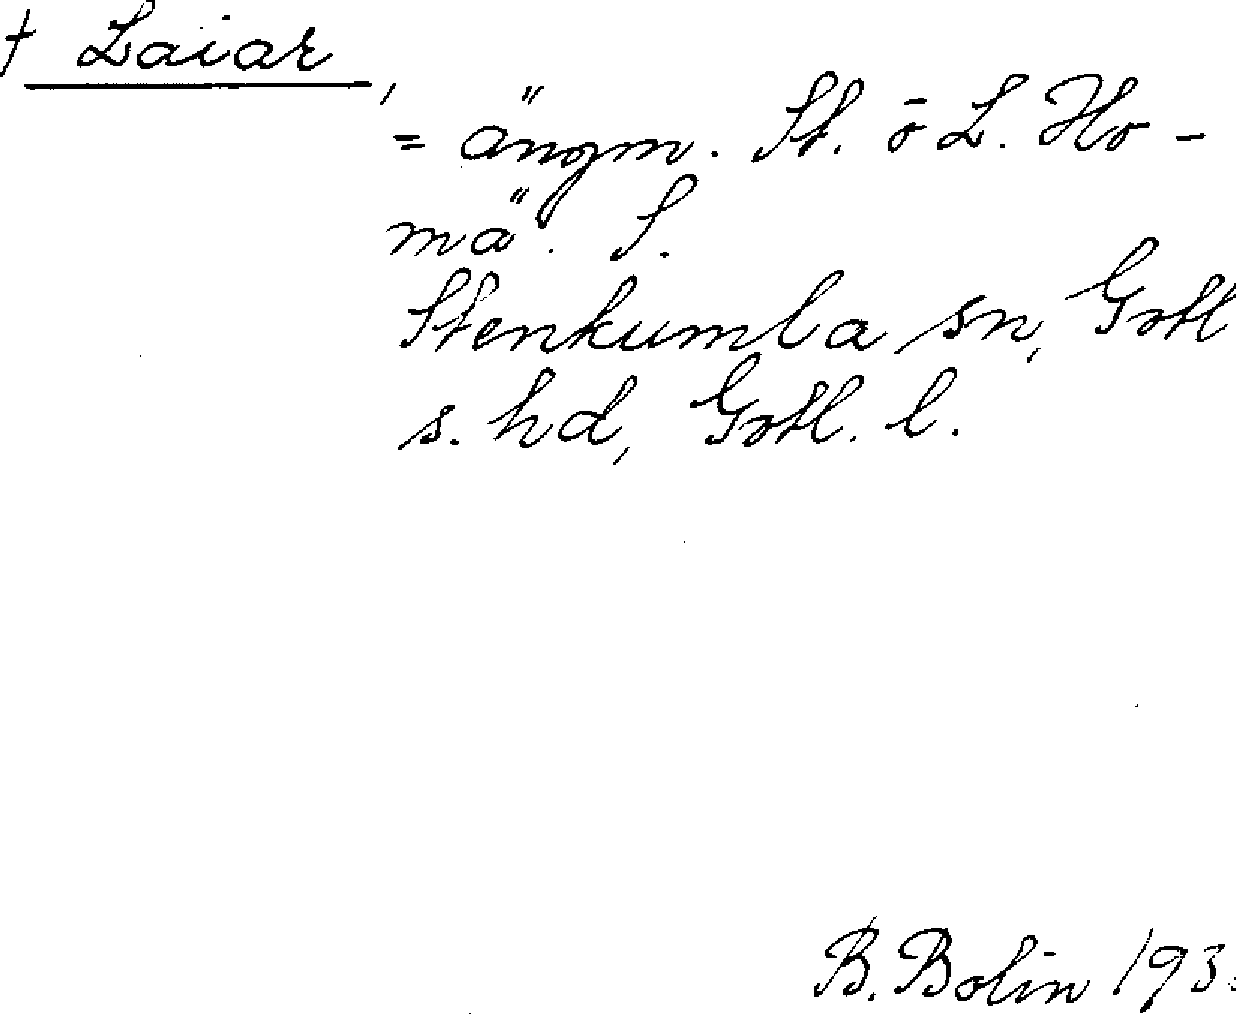 † Laiar,
= ängm. St. ō L. Ho-
mä. S.
Stenkumla sn, Gotl
s. hd, Gotl. l.
B. Bolin 193